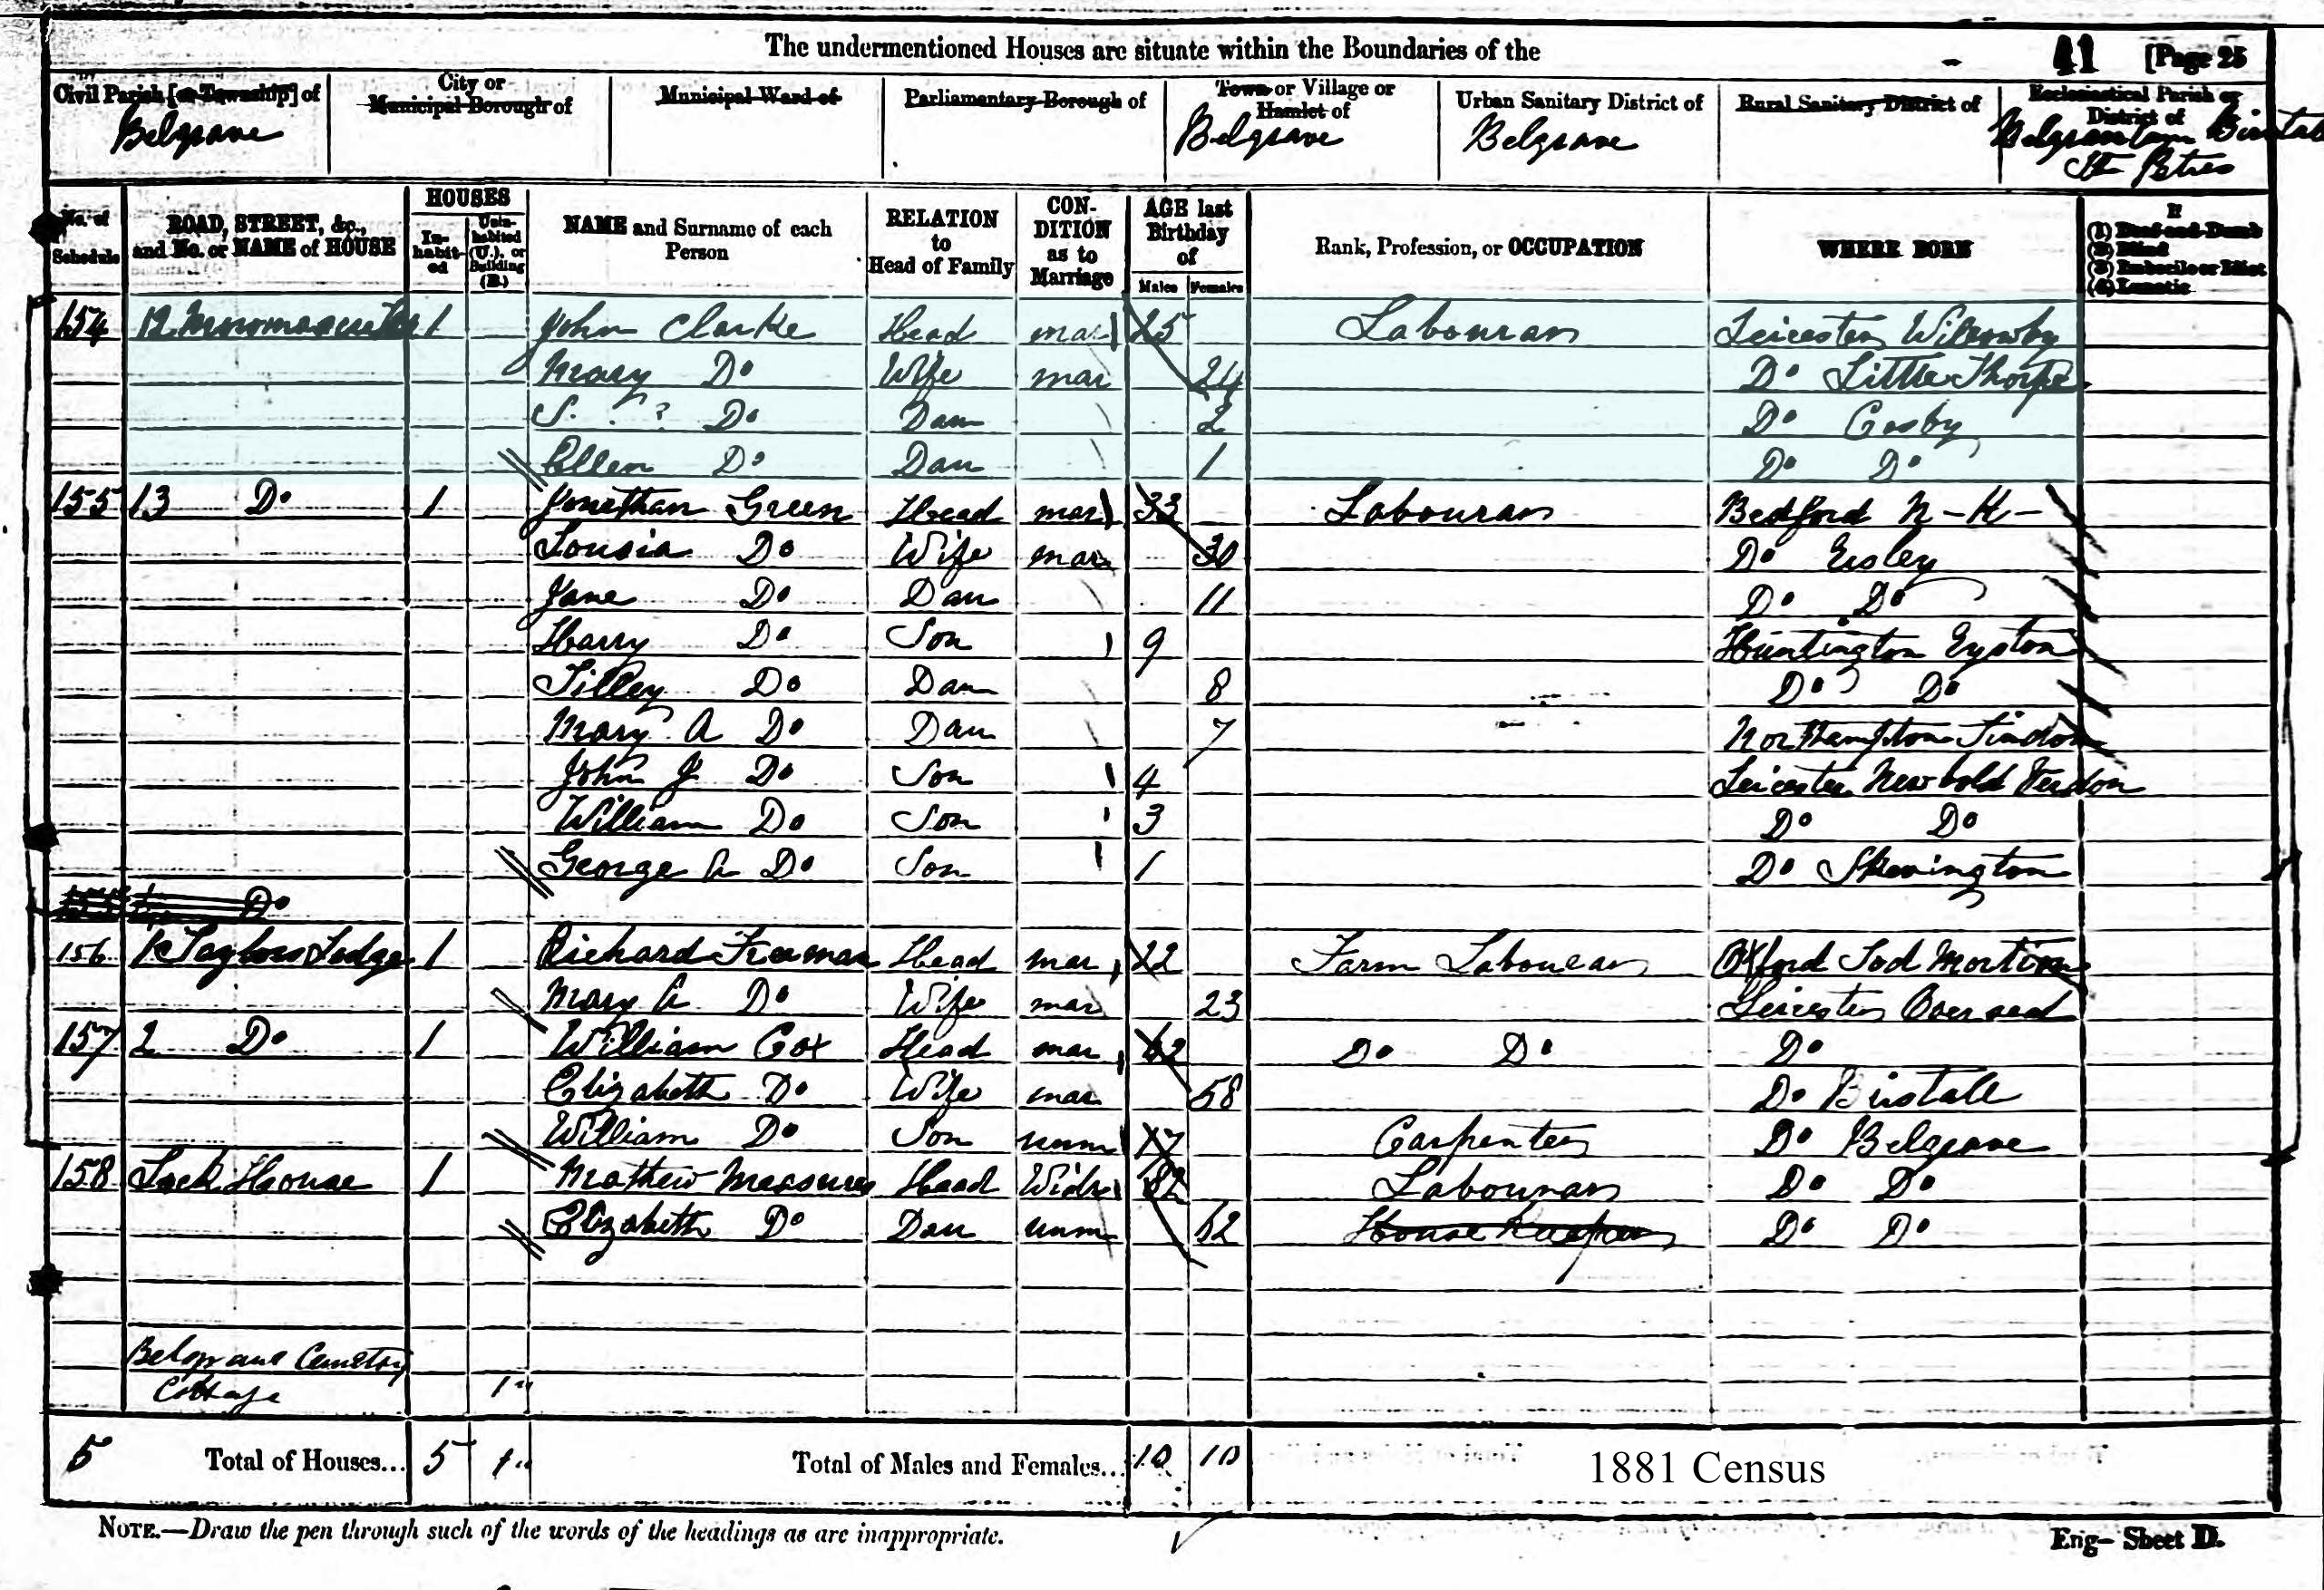 The undermentioned Houses are situate within the Boundaries of the
41 [Page 25
Civil Parish [or Township] of
Belgrave
City or
Municipal Borough of
Municipal Ward of
Parliamentary Borough of
Town or Village or
Hamlet of
Belgrave
Urban Sanitary District of
Belgrave
Rural Sanitary District of
Ecclesiastical Parish or
District of
St Peters
No. of
Schedule
ROAD, STREET, &c.,
and No. or NAME of HOUSE
HOUSES
In-
habit-
ed
Unin-
habited
(U.), or
Building
(B.)
NAME and Surname of each
Person
RELATION
to
Head of Family
CON-
DITION
as to
Marriage
AGE last
Birthday
of
Males Females
Rank, Profession, or OCCUPATION
WHERE BORN
If
(1) Deaf-and-Dumb
(2) Blind
(3) Imbecile or Idiot
(4) Lunatic
154 12 1 John Clarke Head mar 25 Labourar Leicester
Mary Do Wife mar 24 Do Little Thorpe
S. . ? Do Dau 2 Do Cosby
Ellen Do Dau 1 Do Do
155 13 Do 1 Jonathan Green Head mar 33 Labourar Bedford N-K-
Lousia Do Wife mar 30 Do
Jane Do Dau 11 Do Do
Harry Do Son 9 Huntington Eyston
Tilley Do Dau 8 Do Do
Mary A Do Dau 7 Northampton
John J Do Son 4 Leicester Newbold Verdon
William Do Son 3 Do Do
George A Do Son 1 Do Skevington
Do
156 1 Taylors Lodge 1 Richard Freeman Head mar 22 Farm Labourar Oxford
Mary A Do Wife mar 23 Leicester
157 2 Do 1 William Cox Head mar 62 Do Do Do
Elizabeth Do Wife mar 58 Do Birstall
William Do Son unm 17 Carpenter Do Belgrave
158 Lock House 1 Mathew Measures Head Widr 82 Labourar Do Do
Elizabeth Do Dau unm 52 House Keeper Do Do
Belgrave Cemetry
Cottage 1
5 Total of Houses... 5 1 Total of Males and Females... 10 10
1881 Census
NOTE.—Draw the pen through such of the words of the headings as are inappropriate.
Eng— Sheet D.